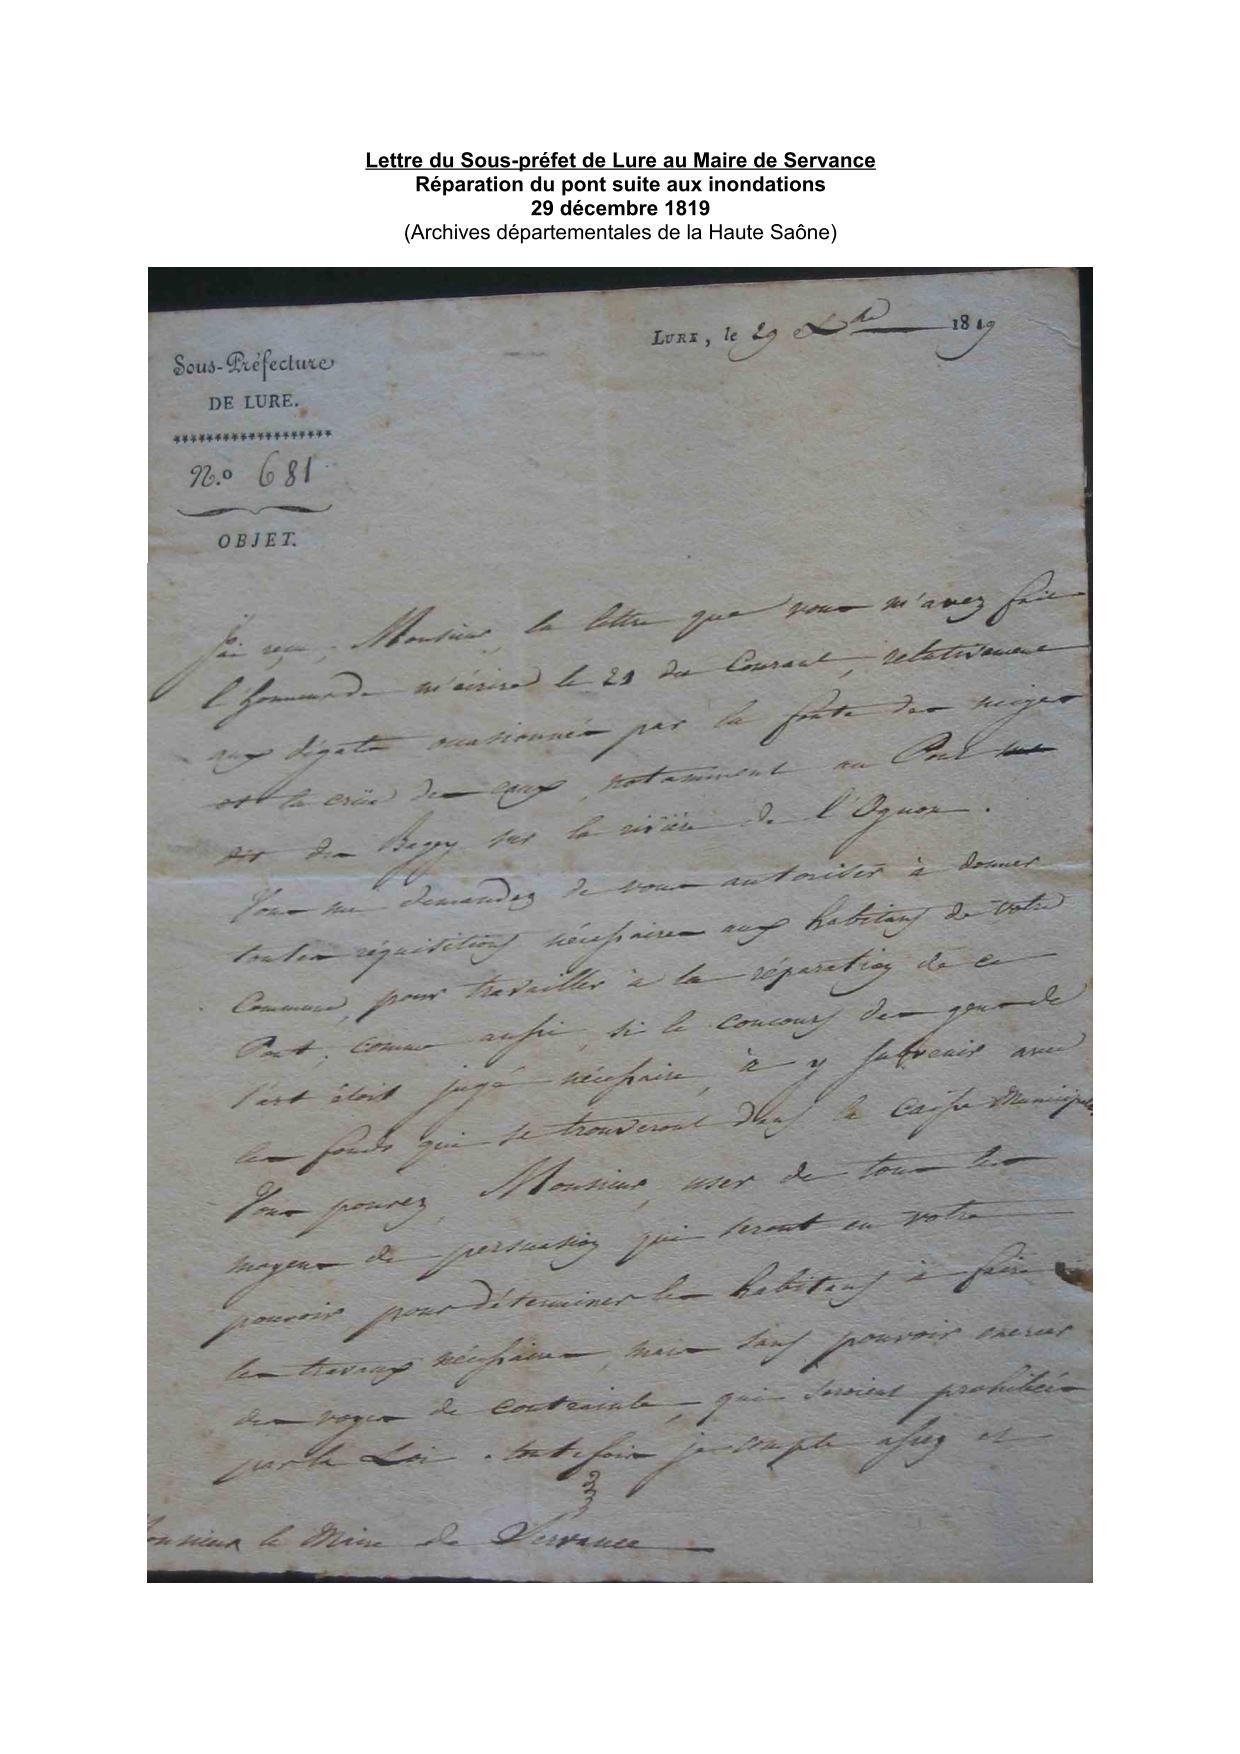 Lettre du Sous-préfet de Lure au Maire de Servance
Réparation du pont suite aux inondations
29 décembre 1819
(Archives départementales de la Haute Saône)
LURE, le 29 Xbre 1819
Sous-Préfecture
DE LURE.
N.o 681
OBJET.
J'ai reçu, Monsieur, la lettre que vous m'avez fait
l'honneur de m'écrire le 21 du Courant, relativement
aux dégats occasionnés par la fonte des neiges
et la crüe des eaux, notamment au Pont
dit des sur la rivière de l'Ognon.
Vous me demandez de vous autoriser à donner
toutes réquisitions nécessaires aux habitans de votre
Commune, pour travailler à la réparation de ce
Pont, comme aussi, si le concours des gens de
l'art étoit jugé nécessaire, à y subvenir avec
les fonds qui se trouveront dans la caisse Municipale.
Vous pouvez, Monsieur, user de tous les
moyens de persuasion qui seront en votre
pouvoir pour déterminer les habitans à faire
les travaux nécessaires, mais sans pouvoir exercer
des voyes de contrainte, qui seroient prohibées
par la Loi. toutefois je compte assez
Monsieur le Maire de Servance